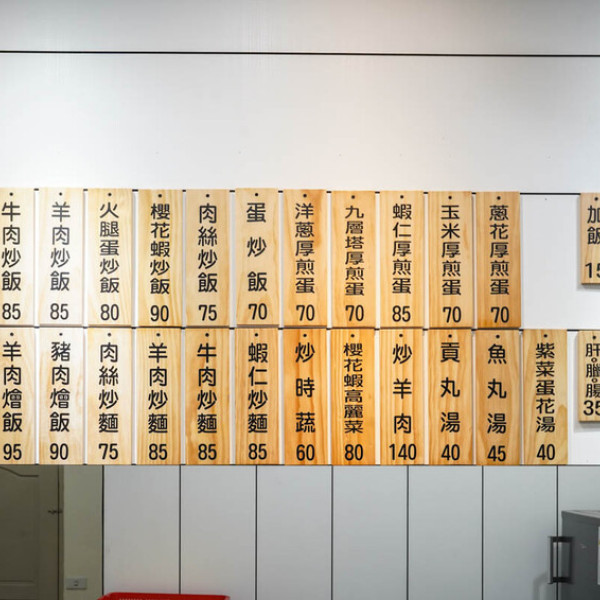 牛肉炒飯 85
羊肉炒飯 85
火腿蛋炒飯 80
櫻花蝦炒飯 90
肉絲炒飯 75
蛋炒飯 70
洋蔥厚煎蛋 70
九層塔厚煎蛋 70
蝦仁厚煎蛋 85
玉米厚煎蛋 70
蔥花厚煎蛋 70
加飯 15
羊肉燴飯 95
豬肉燴飯 90
肉絲炒麵 75
羊肉炒麵 85
牛肉炒麵 85
蝦仁炒麵 85
炒時蔬 60
櫻花蝦高麗菜 80
炒羊肉 140
貢丸湯 40
魚丸湯 45
紫菜蛋花湯 40
肝臘腸 35